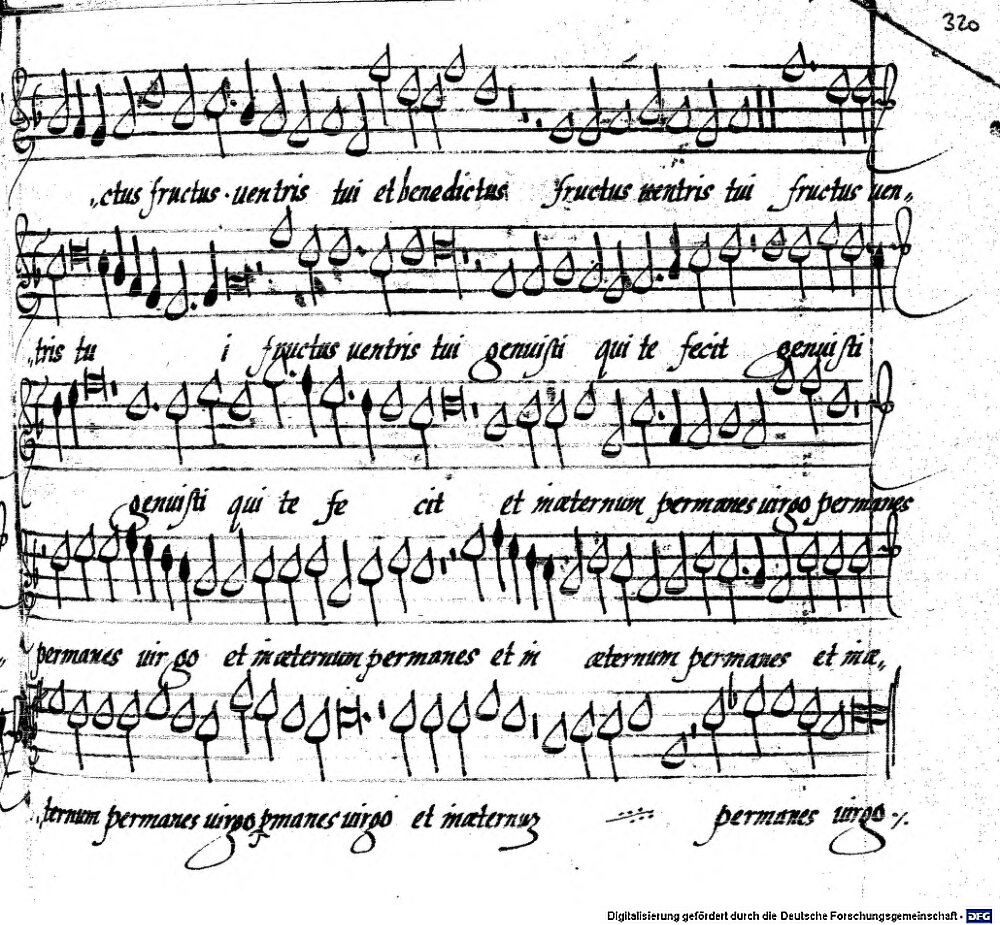 320
„ctus fructus · uentris tui et benedictus fructus uentris tui fructus uen„
„tris tu i fructus uentris tui genuisti qui te fecit genuisti
genuisti qui te fe cit et inæternum permanes uirgo permanes
permanes uirgo et inæternum permanes et in æternum permanes et inæ„
„ternum permanes uirgo pmanes uirgo et inæternuz permanes uirgo ·/.
Digitalisierung gefördert durch die Deutsche Forschungsgemeinschaft - DFG